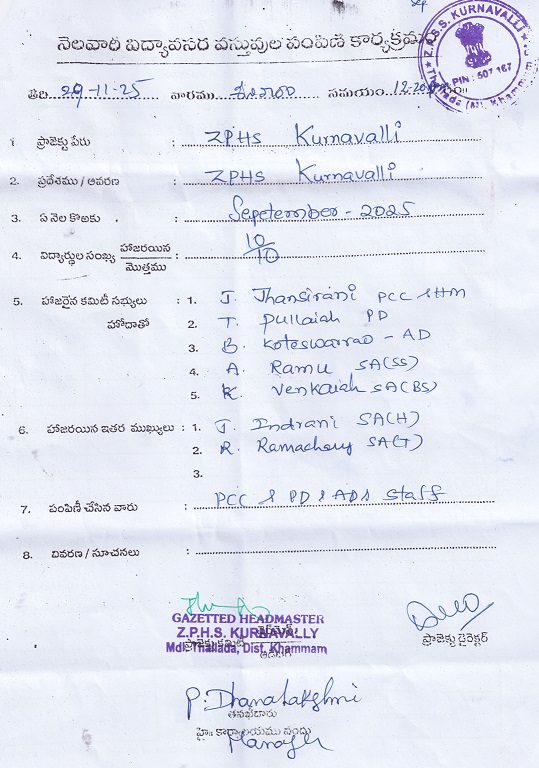 Sep
Z.P.S.S. KURNAVALLI
PIN : 507 167
Thallada (M), Khammam
నెలవారి విద్యావసర వస్తువుల పంపిణి కార్యక్రమం
తేది 29-11-25 వారము శనివారం సమయం 12-20
1. ప్రాజెక్టు పేరు : ZPHS Kurnavalli
2. ప్రదేశము / ఆవరణ : ZPHS Kurnavalli
3. ఏ నెల కొఱకు : Sepetember - 2025
4. విద్యార్థుల సంఖ్య హాజరయిన / మొత్తము : 10/10
5. హాజరైన కమిటీ సభ్యులు : 1. J. Jhansirani PCC & HM
హోదాతో 2. T. pullaiah PD
3. B. Koteswarrao - AD
4. A. Ramu SA(SS)
5. K. Venkaiah SA(BS)
6. హాజరయిన ఇతర ముఖ్యులు : 1. J. Indrani SA(H)
2. R. Ramachary SA(T)
3.
7. పంపిణీ చేసిన వారు : PCC & PD & AD & Staff
8. వివరణ / సూచనలు :
GAZETTED HEADMASTER
Z.P.H.S. KURNAVALLY
ప్రాజెక్టు కమిటీ
Mdl. Thallada, Dist. Khammam
ప్రాజెక్టు డైరెక్టర్
P. Dhanalakshmi
Manager